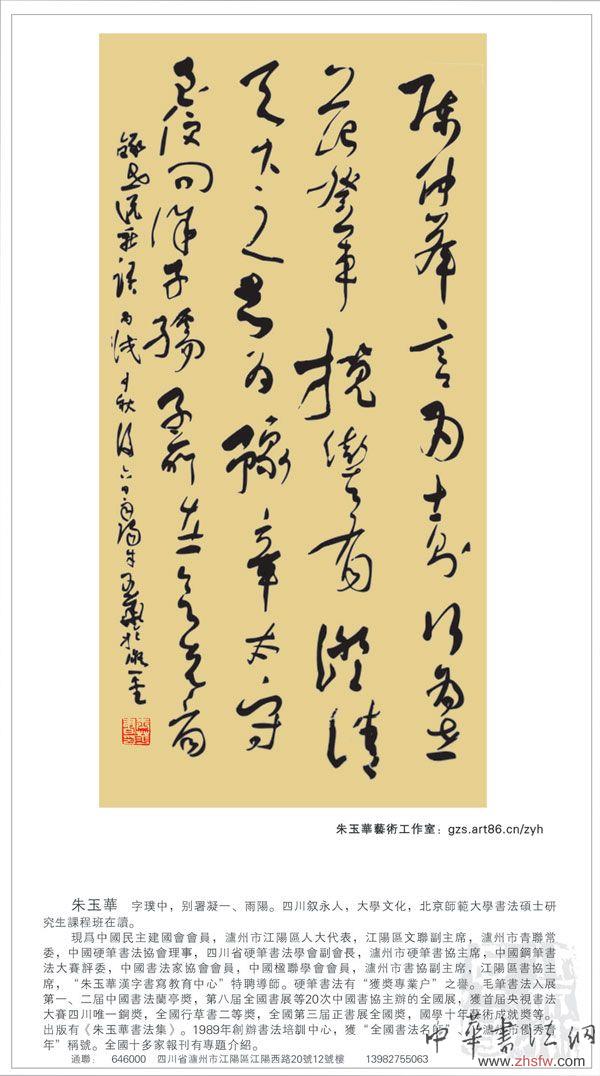 陳仲舉言為士則行為世
範登車攬轡有澄清
天下之志為豫章太守
至便問徐孺子所在欲先看
錄世說新語丙戌中秋後六日雨陽生玉華於凝一堂
朱玉華藝術工作室：gzs.art86.cn/zyh
朱玉華　字璞中，别署凝一、雨陽。四川叙永人，大學文化，北京師範大學書法碩士研
究生課程班在讀。
現爲中國民主建國會會員，瀘州市江陽區人大代表，江陽區文聯副主席，瀘州市青聯常
委，中國硬筆書法協會理事，四川省硬筆書法學會副會長，瀘州市硬筆書協主席，中國鋼筆書
法大賽評委，中國書法家協會會員，中國楹聯學會會員，瀘州市書協副主席，江陽區書協主
席，“朱玉華漢字書寫教育中心”特聘導師。硬筆書法有“獲奬專業户”之譽。毛筆書法入展
第一、二届中國書法蘭亭奬，第八届全國書展等20次中國書協主辦的全國展，獲首届央視書法
大賽四川唯一銅奬，全國行草書二等奬，全國第三届正書展全國奬，國學十年藝術成就奬等。
出版有《朱玉華書法集》。1989年創辦書法培訓中心，獲“全國書法名師”、“瀘州市優秀青
年”稱號。全國十多家報刊有專題介紹。
通聯：　646000　四川省瀘州市江陽區江陽西路20號12號樓　13982755063
中华书法网
www.zhsfw.com